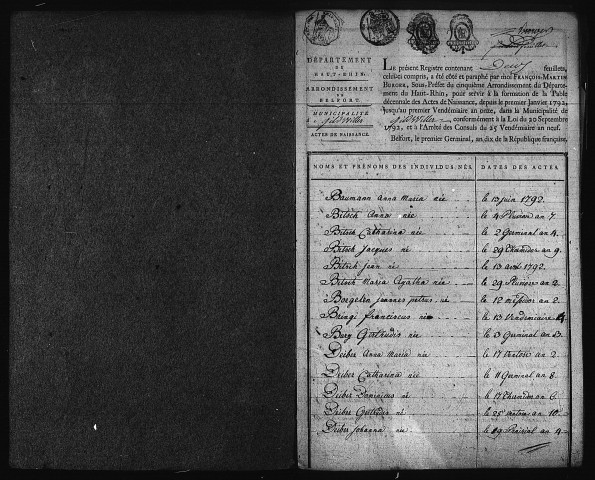 DÉPARTEMENT
DU
HAUT-RHIN.
ARRONDISSEMENT
DE
BELFORT.
MUNICIPALITÉ
de Gildwiller
ACTES DE NAISSANCE.
LE présent Registre contenant Deux feuillets,
celui-ci compris, a été côté et paraphé par moi FRANÇOIS-MARTIN
BURGER, Sous-Préfet du cinquième Arrondissement du Départe-
ment du Haut-Rhin, pour servir à la formation de la Table
décennale des Actes de Naissance, depuis le premier Janvier 1792,
jusqu'au premier Vendémiaire an onze, dans la Municipalité de
Gildwiller conformément à la Loi du 20 Septembre
1792, et à l'Arrêté des Consuls du 25 Vendémiaire an neuf.
Belfort, le premier Germinal, an dix de la République française.
NOMS ET PRÉNOMS DES INDIVIDUS NÉS. DATES DES ACTES.
Baumann Anna Maria née le 13 juin 1792.
Bitsch Anna née le 4 Pluviose an 7.
Bitsch Catharina née le 2 Germinal an 4.
Bitsch Jacques né le 29 Thermidor an 9.
Bitsch Jean né le 13 1792.
Bitsch Maria Agatha née le 29 Pluviose an 2.
Borgelen Joannes petrus né le 12 Messidor an 2.
Bringi franciscus né le 13 Vendemiaire 4
Burg Gertrudis née le 3 Germinal an
Deiber Anna Maria née le 17 Ventose an 2.
Deiber Catharina née le 11 Germinal an 8.
Deiber Dominicus né le 17 Thermidor an 6.
Deiber Gertrudis né le 25 Ventose an 10
Deiber Johanna née le 29 Prairial an 4